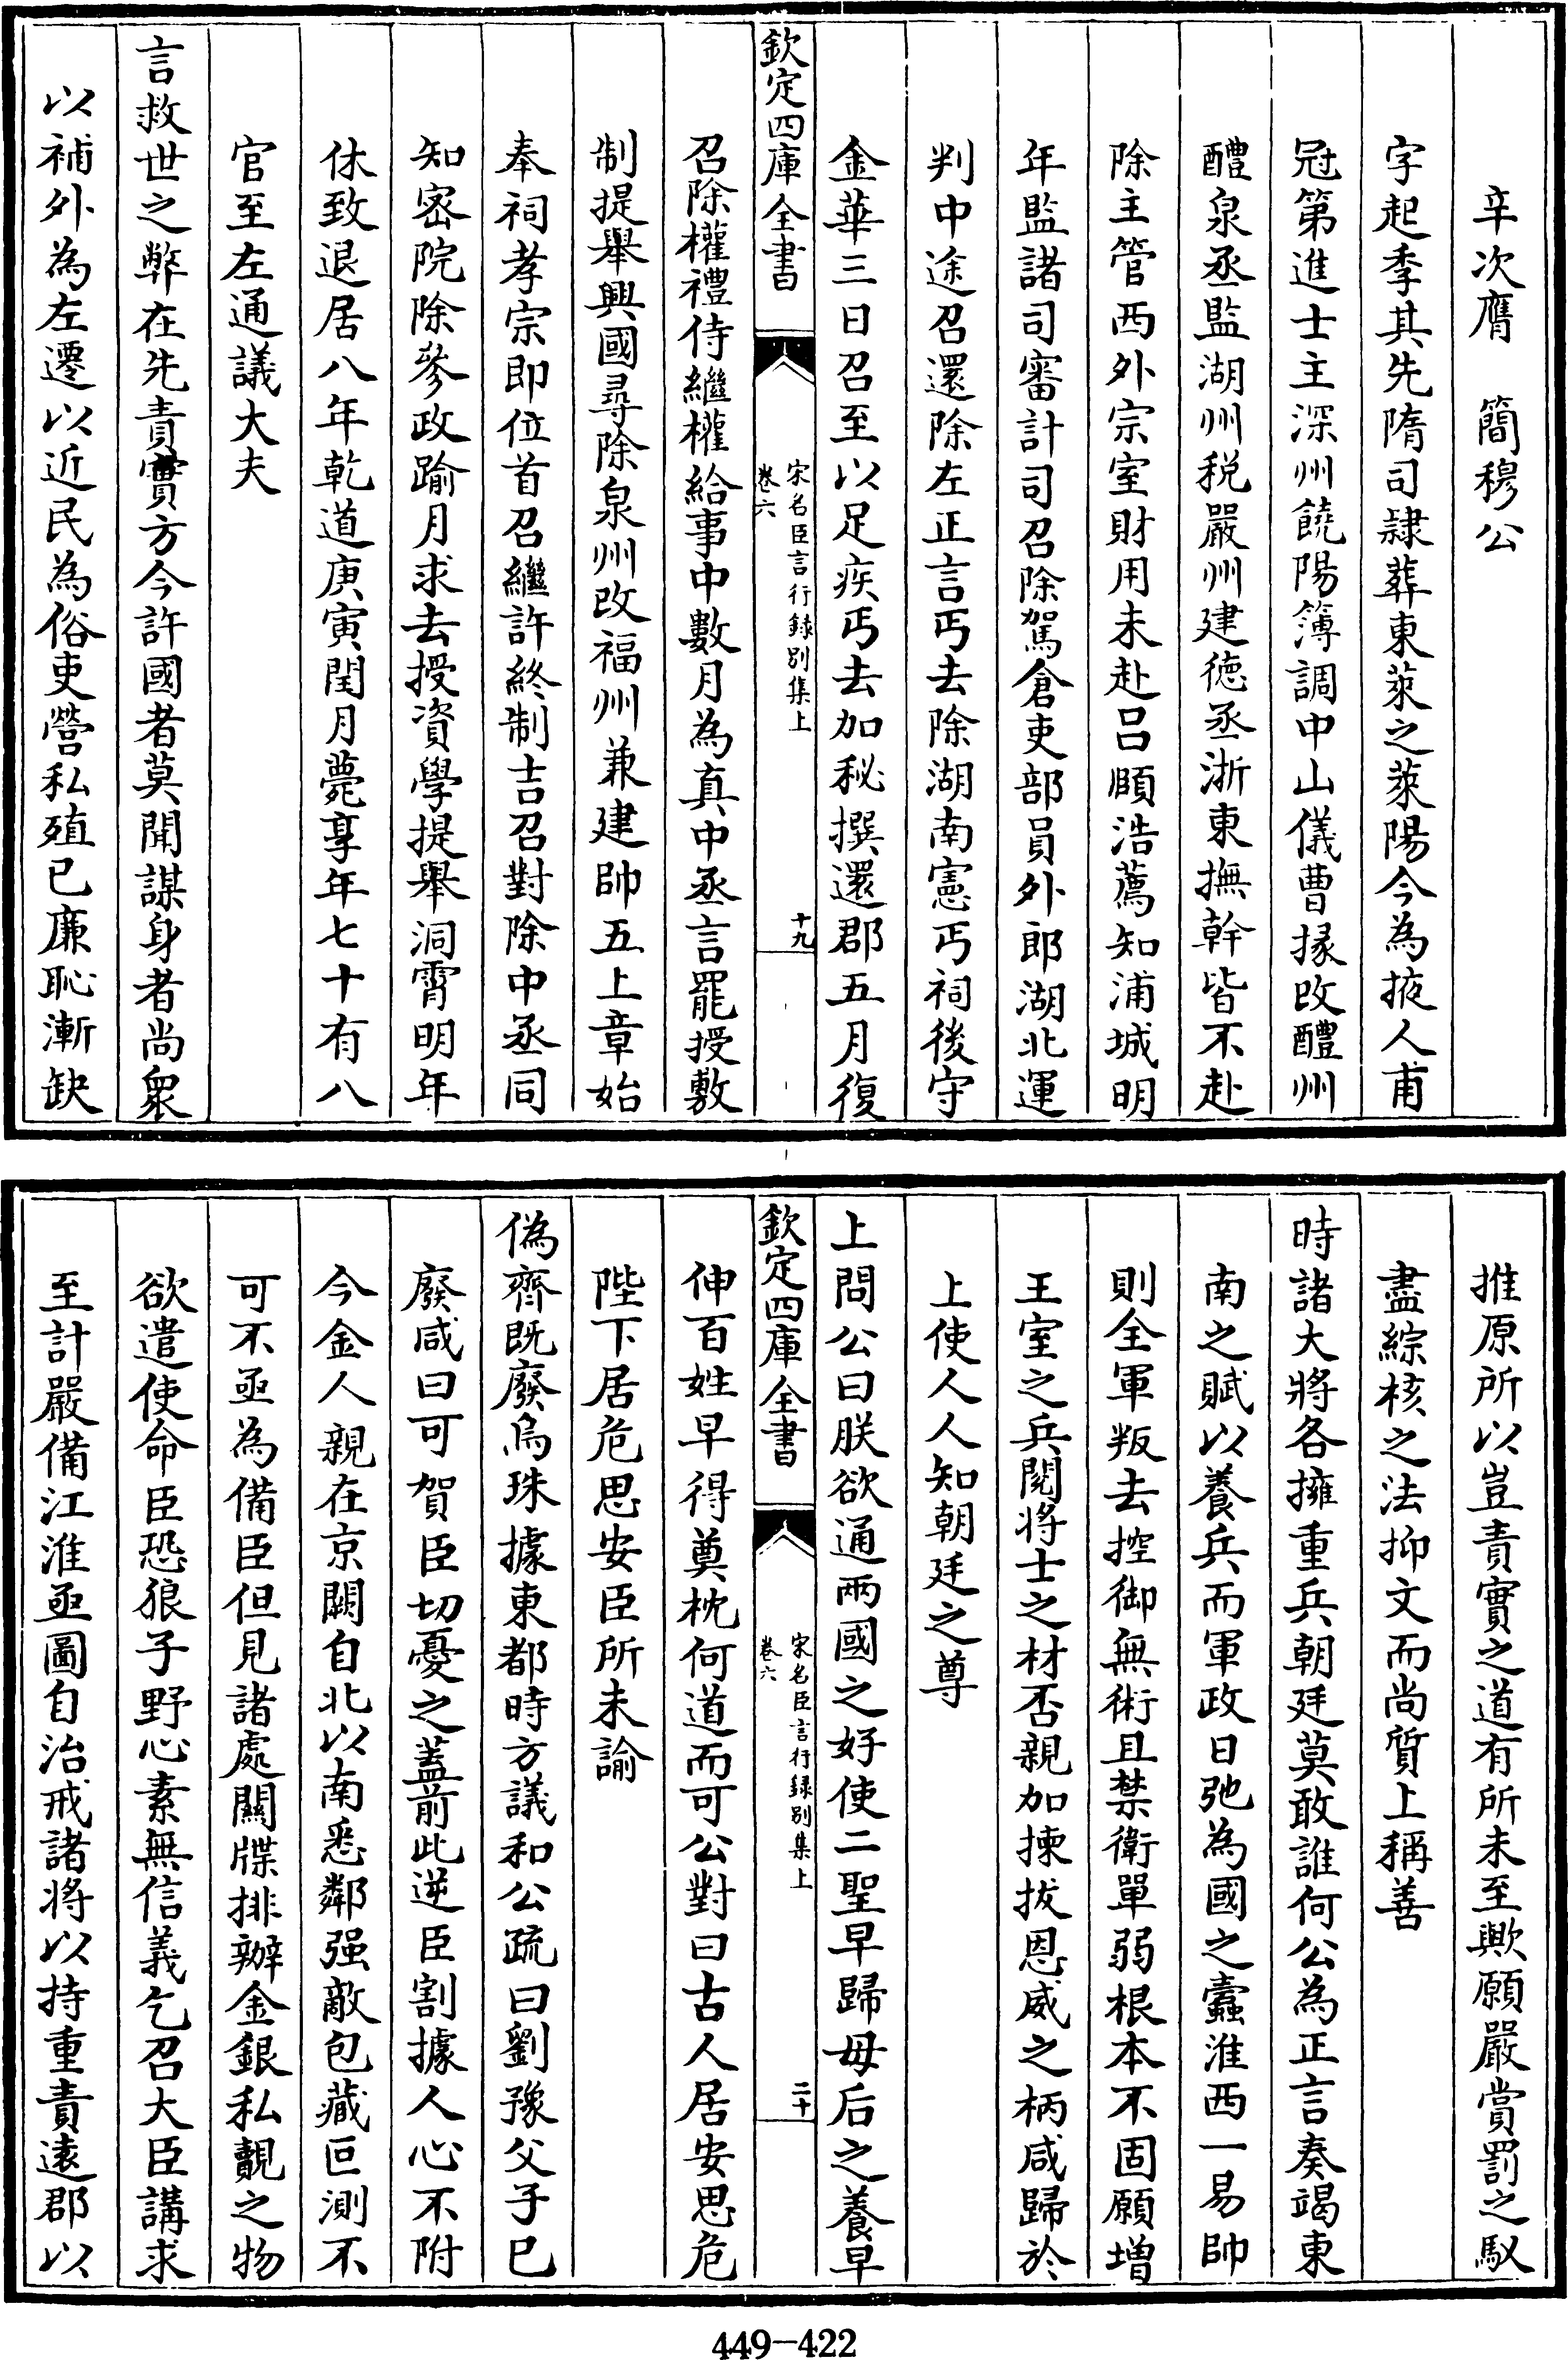 辛次膺　簡穆公
字起季其先隋司隷葬東萊之萊陽今為掖人甫
冠第進士主深州饒陽簿調中山儀曹掾改醴州
醴泉丞監湖州税嚴州建徳丞浙東撫幹皆不赴
除主管西外宗室財用未赴吕頤浩薦知浦城明
年監諸司審計司召除駕倉吏部員外郎湖北運
判中途召還除左正言丐去除湖南憲丐祠後守
金華三日召至以足疾丐去加秘撰還郡五月復
欽定四庫全書
宋名臣言行録别集上
卷六
十九
召除權禮侍繼權給事中數月為真中丞言罷授敷
制提舉興國尋除泉州改福州兼建帥五上章始
奉祠孝宗即位首召繼許終制吉召對除中丞同
知密院除參政踰月求去授資學提舉洞霄明年
休致退居八年乾道庚寅閏月薨享年七十有八
官至左通議大夫
言救世之弊在先責實方今許國者莫聞謀身者尚衆
以補外為左遷以近民為俗吏營私殖已廉恥漸缺
推原所以豈責實之道有所未至歟願嚴賞罰之馭
盡綜核之法抑文而尚質上稱善
時諸大將各擁重兵朝廷莫敢誰何公為正言奏竭東
南之賦以養兵而軍政日弛為國之蠹淮西一易帥
則全軍叛去控御無術且禁衛單弱根本不固願增
王室之兵閱將士之材否親加揀拔恩威之柄咸歸於
上使人人知朝廷之尊
上問公曰朕欲通兩國之好使二聖早歸母后之養早
欽定四庫全書
宋名臣言行録别集上
卷六
二十
伸百姓早得奠枕何道而可公對曰古人居安思危
陛下居危思安臣所未諭
偽齊既廢烏珠據東都時方議和公疏曰劉豫父子已
廢咸曰可賀臣切憂之蓋前此逆臣割據人心不附
今金人親在京闕自北以南悉鄰强敵包藏叵測不
可不亟為備臣但見諸處關牒排辦金銀私覿之物
欲遣使命臣恐狼子野心素無信義乞召大臣講求
至計嚴備江淮亟圖自治戒諸將以持重責逺郡以
449-422